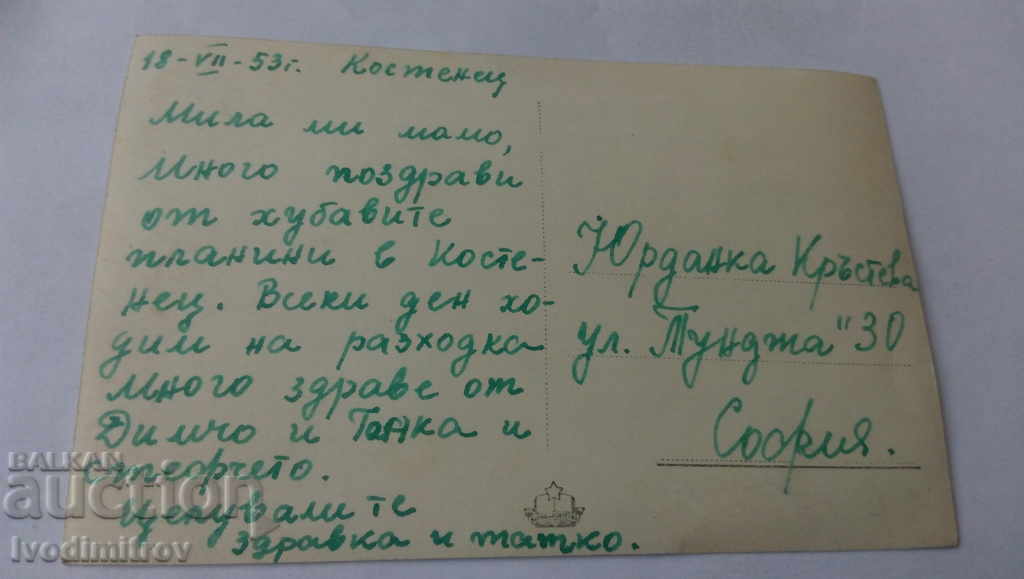 18-VII-53г. Костенец
Мила ми мамо,
Много поздрави
от хубавите
планини в Косте-
нец. Всеки ден хо-
дим на разходка
Много здраве от
Димчо и Танка и
Стефчето.
Целували те
Здравка и татко.
Юрданка Кръстева
ул. Тунджа" 30
София.
BALKAN
auction
Ivodimitrov